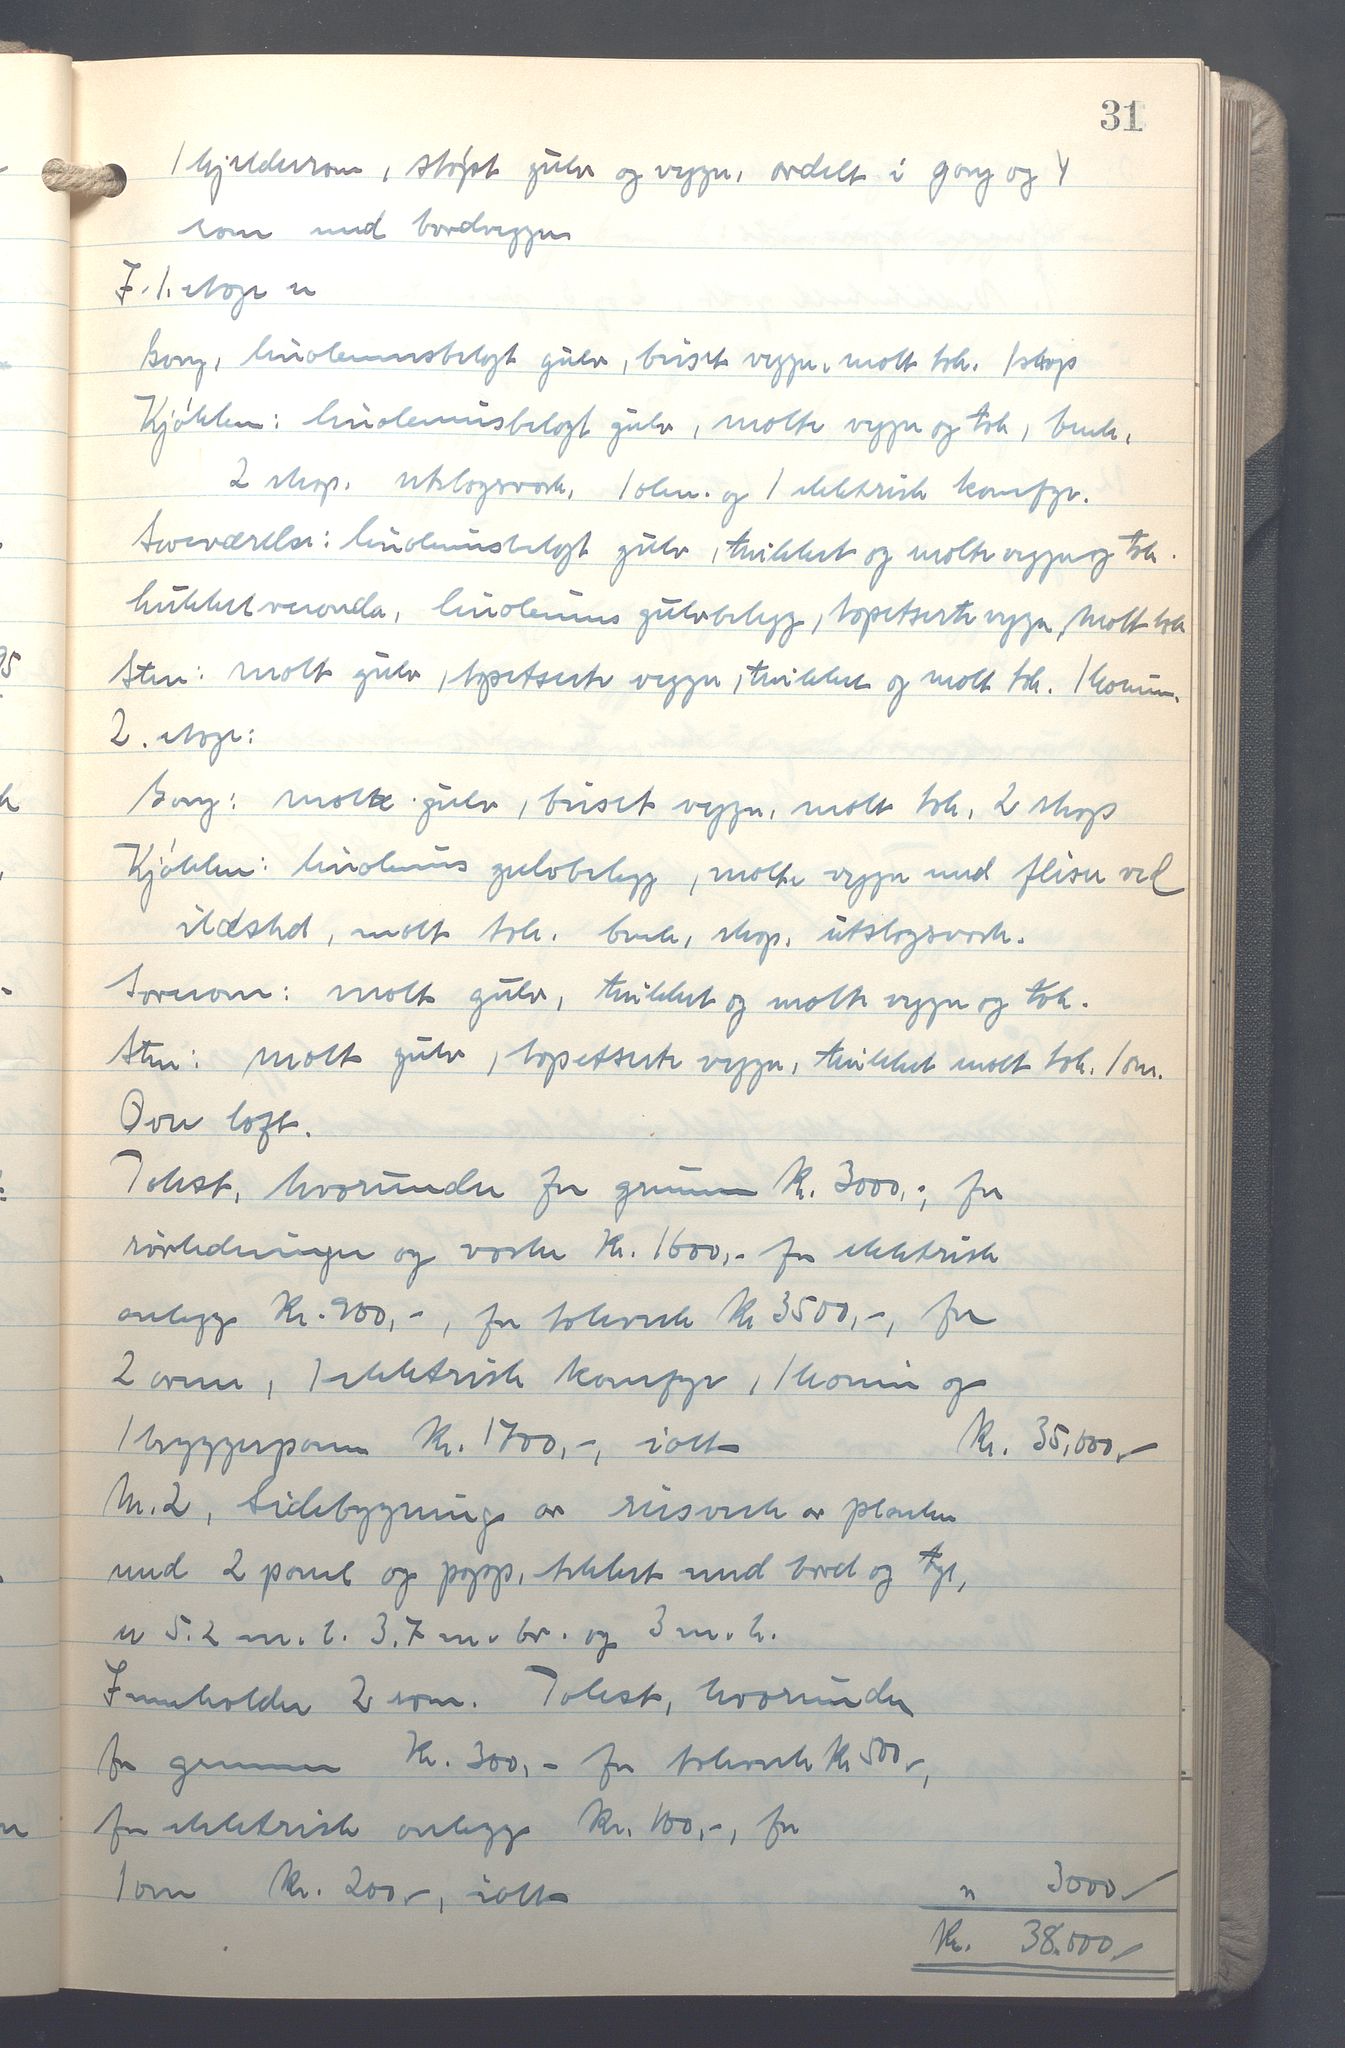 31
1 kjelderrom, støpt gulv og vegger, avdelt i gang og 4
rom med bordvegger
I. 1. etage er
Gang, linoleumsbelagt gulv, beiset vegger, malt tak. 1 skap
Kjøkken: linoleumsbelagt gulv, malte vegger og tak, benk,
2 skap, utslagsvask, 1 oven og 1 elektrisk komfyr.
Soveværelse: linoleumsbelagt gulv, trukket og malte vegger og tak.
Lukket veranda, linoleums gulvbelegg, tapetserte vegger, malt tak
Stue: malt gulv, tapetserte vegger, trukket og malt tak. 1 kamin.
2. etage:
Gang: malte gulv, beiset vegger, malt tak, 2 skap
Kjøkken: linoleums gulvbelegg, malte vegger med fliser ved
ildsted, malt tak. benk, skap, utslagsvask.
Soverom: malt gulv, trukket og malte vegger og tak.
Stue: malt gulv, tapetserte vegger, trukket malt tak. 1 ovn.
Over loft.
Takst, hvorunder for grunnmur kr. 3000,-, for
rørledninger og vasker kr. 1600,- for elektrisk
anlegg kr. 900,-, for takverk kr 3500,-, for
2 ovner, 1 elektrisk komfyr, 1 kamin og
1 bryggerpanne kr. 1700,-, ialt kr. 35,000,-
Nr. 2, Sidebygning av reisverk av planker
med 2 panel og papp, tekket med bord og tegl,
er 5.2 m. l. 3.7 m. br. og 3 m. h.
Inneholder 2 rom. Takst, hvorunder
for grunnmur kr. 300,- for takverk kr 500,-,
for elektrisk anlegg kr. 100,-, for
1 ovn kr. 200,-, ialt " 3000,-
kr. 38.000,-